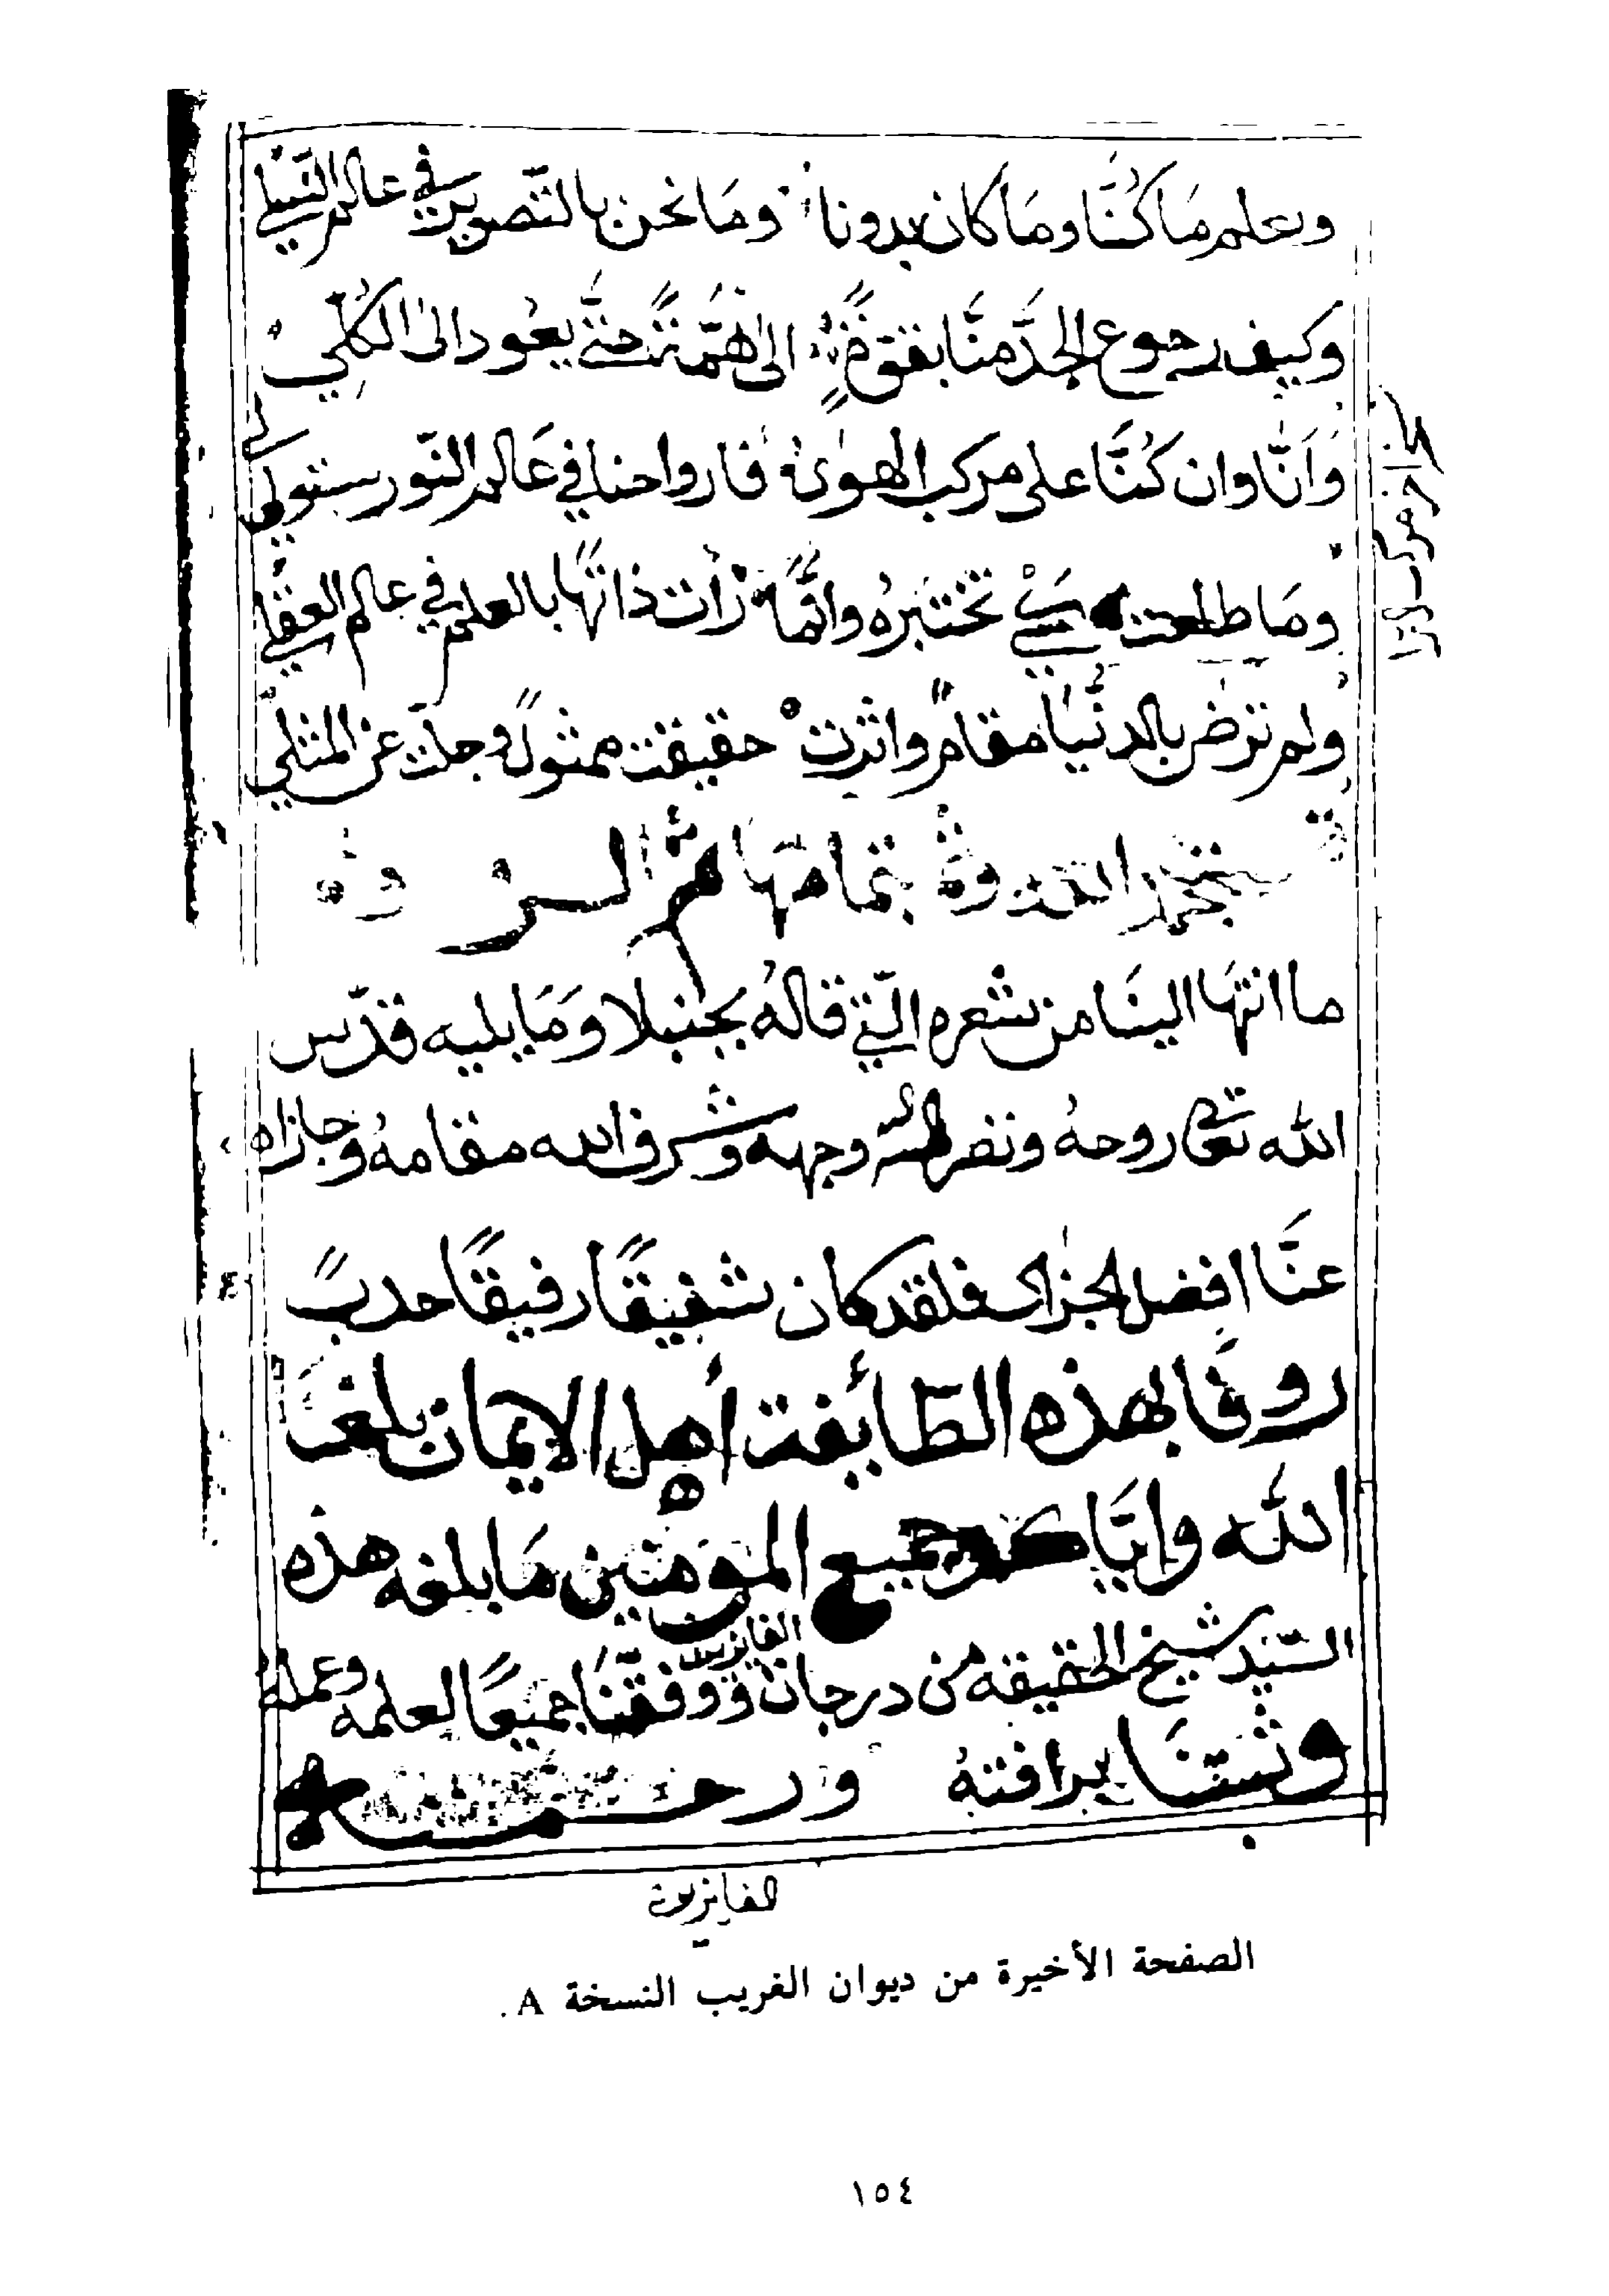 وعلم مَا كُنَّا ومَا كان بدونا ومَا نحن بالتّصوير في عالم
وكيف رجوع الجدّ منّا بقوّةٍ الى حتّى يعود الى الكلّي
وَاَنَّا وان كُنَّا على مركب الهوى فارواحنا في عَالم النّور ستولي
ومَا طلعت تختبرهُ وانّمَا رأت ذاتهَا بالعلم في عالم العقلي
ولم ترض بالدنْيَا مقامًا واثرت حقيقت ممثولٍ وجلّت عن المثلي
بتمامهَا
ما انتهَا الينَا من شعره الّتي قالهُ بجنبلا وَمَا يليه قدّس
الله تعالى روحهُ ونضر الله وجهه وشرف الله مقامهُ وجازاه
عنَّا افضل الجزاء فلقد كان شفيقًا رفيقًا حدبً
روفًا بهذه الطّايفة أهل الايمان بلغنَا
الله وايّاكم وجميع المومنين مَا بلغه هذه
السّيد شيخ الحقيقه من درجات ووفّقنَا جميعًا لعلمه وعمله
الفايزين
وثبتنَا برافتهُ ورحمته
الفايزين
الصفحة الأخيرة من ديوان الغريب النسخة A.
١٥٤